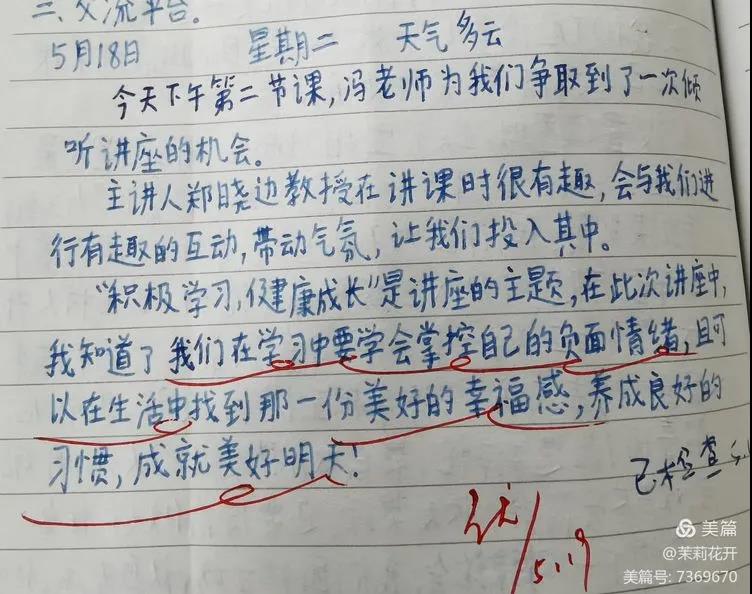 二、交流平台。
5月18日 星期二 天气多云
今天下午第二节课,冯老师为我们争取到了一次倾
听讲座的机会。
主讲人郑晓边教授在讲课时很有趣,会与我们进
行有趣的互动,带动气氛,让我们投入其中。
"积极学习,健康成长"是讲座的主题,在此次讲座中,
我知道了我们在学习中要学会掌控自己的负面情绪,且可
以在生活中找到那一份美好的幸福感,养成良好的
习惯,成就美好明天!
已检查
5.19
美篇
@茉莉花开
美篇号: 7369670